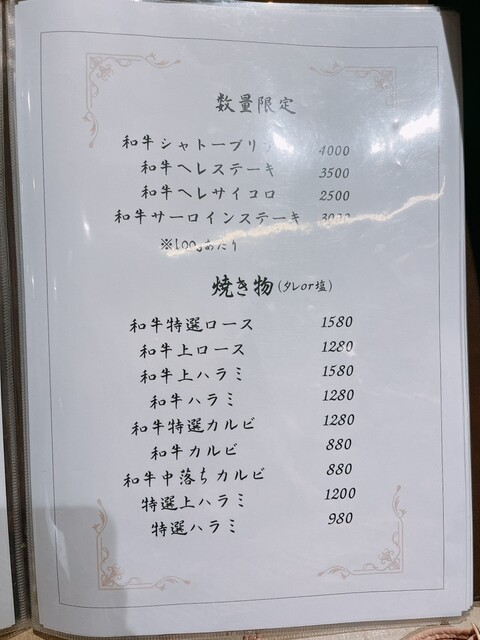 数量限定
和牛シャトーブリ 4000
和牛ヘレステーキ 3500
和牛ヘレサイコロ 2500
和牛サーロインステーキ
※100gあたり
焼き物(タレor塩)
和牛特選ロース 1580
和牛上ロース 1280
和牛上ハラミ 1580
和牛ハラミ 1280
和牛特選カルビ 1280
和牛カルビ 880
和牛中落ちカルビ 880
特選上ハラミ 1200
特選ハラミ 980